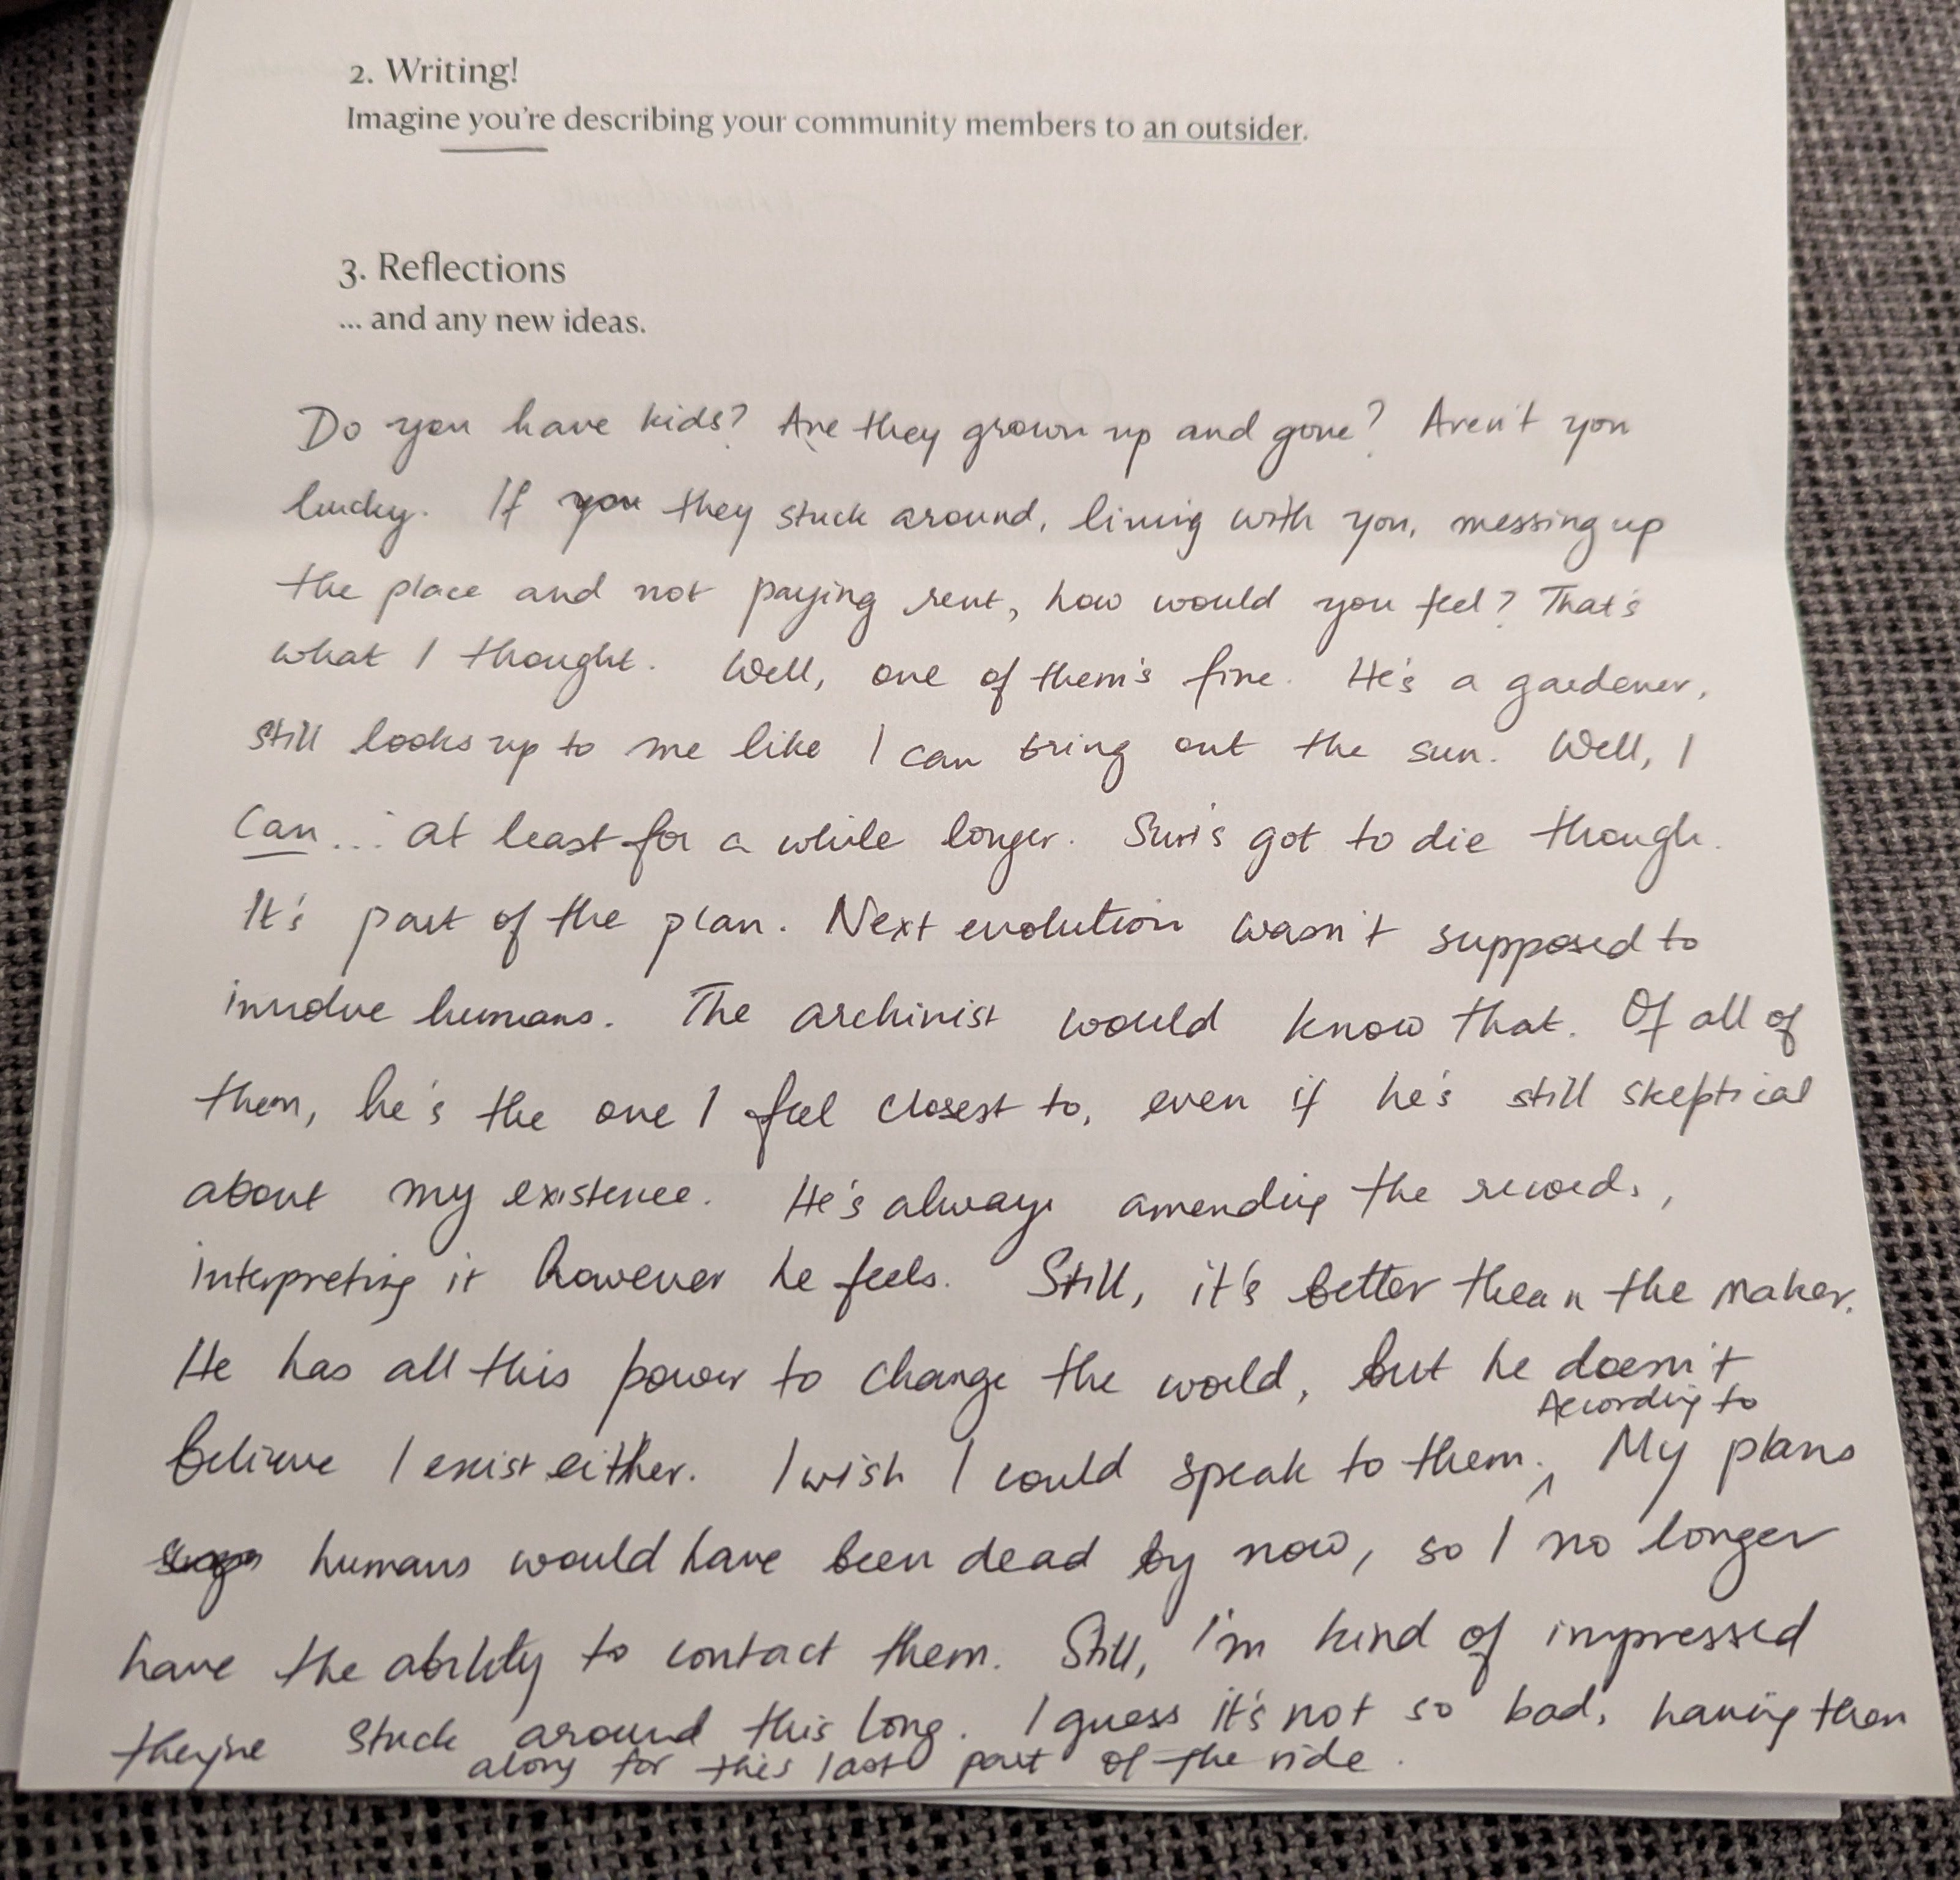 2. Writing!
Imagine you're describing your community members to an outsider.
3. Reflections
... and any new ideas.
Do you have kids? Are they grown up and gone? Aren't you
lucky. If you they stuck around, living with you, messing up
the place and not paying rent, how would you feel? That's
what I thought. Well, one of them's fine. He's a gardener,
still looks up to me like I can bring out the sun. Well, I
can... at least for a while longer. Sun's got to die though.
It's part of the plan. Next evolution wasn't supposed to
involve humans. The archivist would know that. Of all of
them, he's the one I feel closest to, even if he's still skeptical
about my existence. He's always amending the records,
interpreting it however he feels. Still, it's better than the maker.
He has all this power to change the world, but he doesn't
According to
believe I exist either. I wish I could speak to them. My plans
humans would have been dead by now, so I no longer
have the ability to contact them. Still, I'm kind of impressed
they've stuck around this long. I guess it's not so bad, having them
along for this last part of the ride.